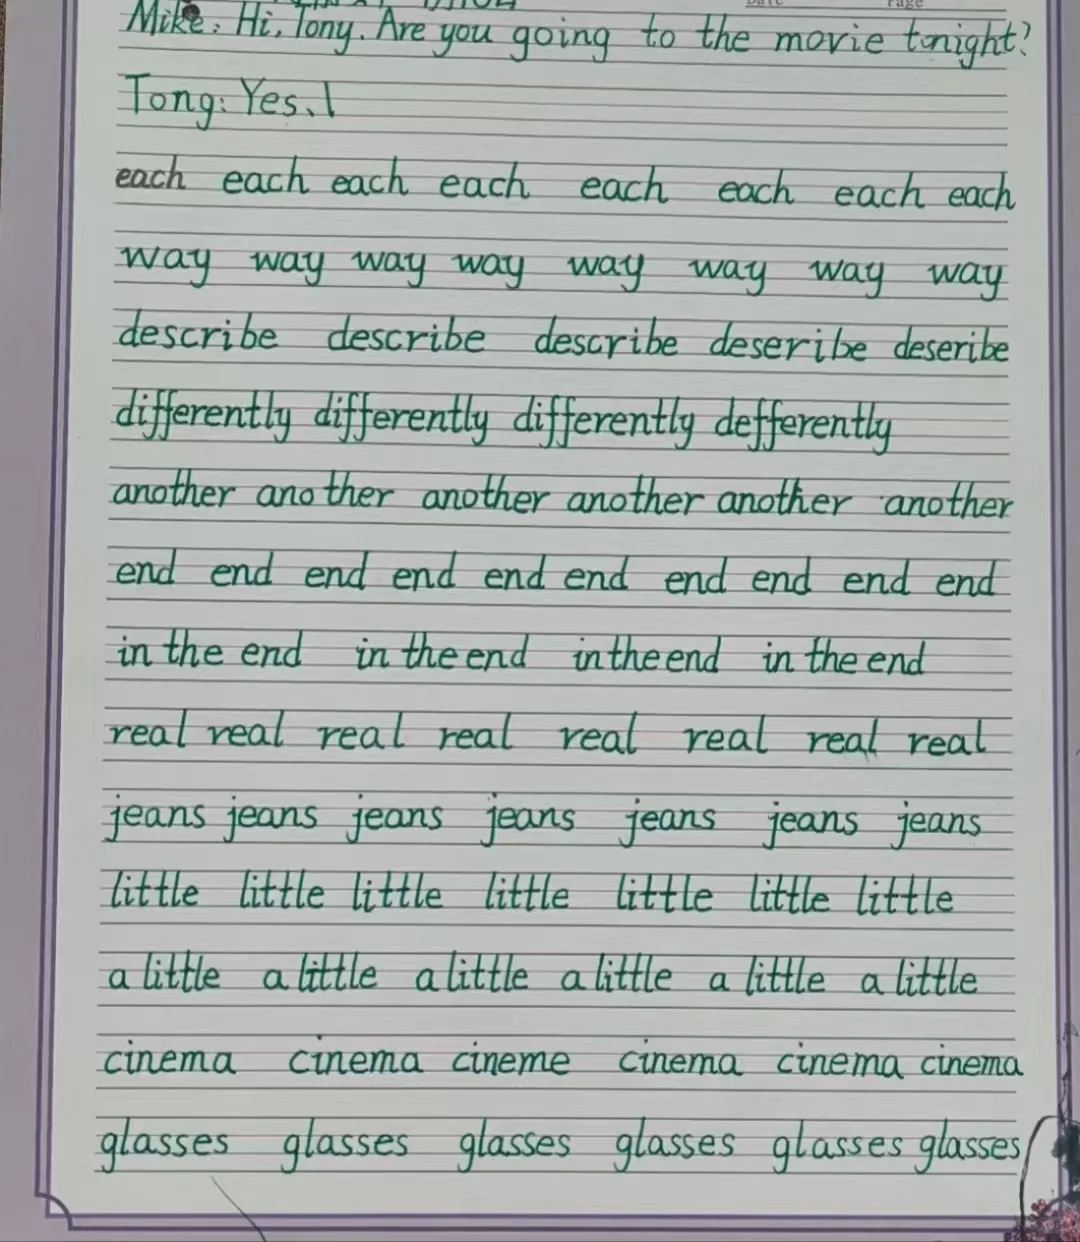 Mike: Hi, Tony. Are you going to the movie tonight?
Tong: Yes, I
each each each each each each each each
way way way way way way way way
describe describe describe deseribe deseribe
differently differently differently defferently
another another another another another another
end end end end end end end end end end
in the end in the end in the end in the end
real real real real real real real real
jeans jeans jeans jeans jeans jeans jeans
little little little little little little little
a little a little a little a little a little a little
cinema cinema cineme cinema cinema cinema
glasses glasses glasses glasses glasses glasses